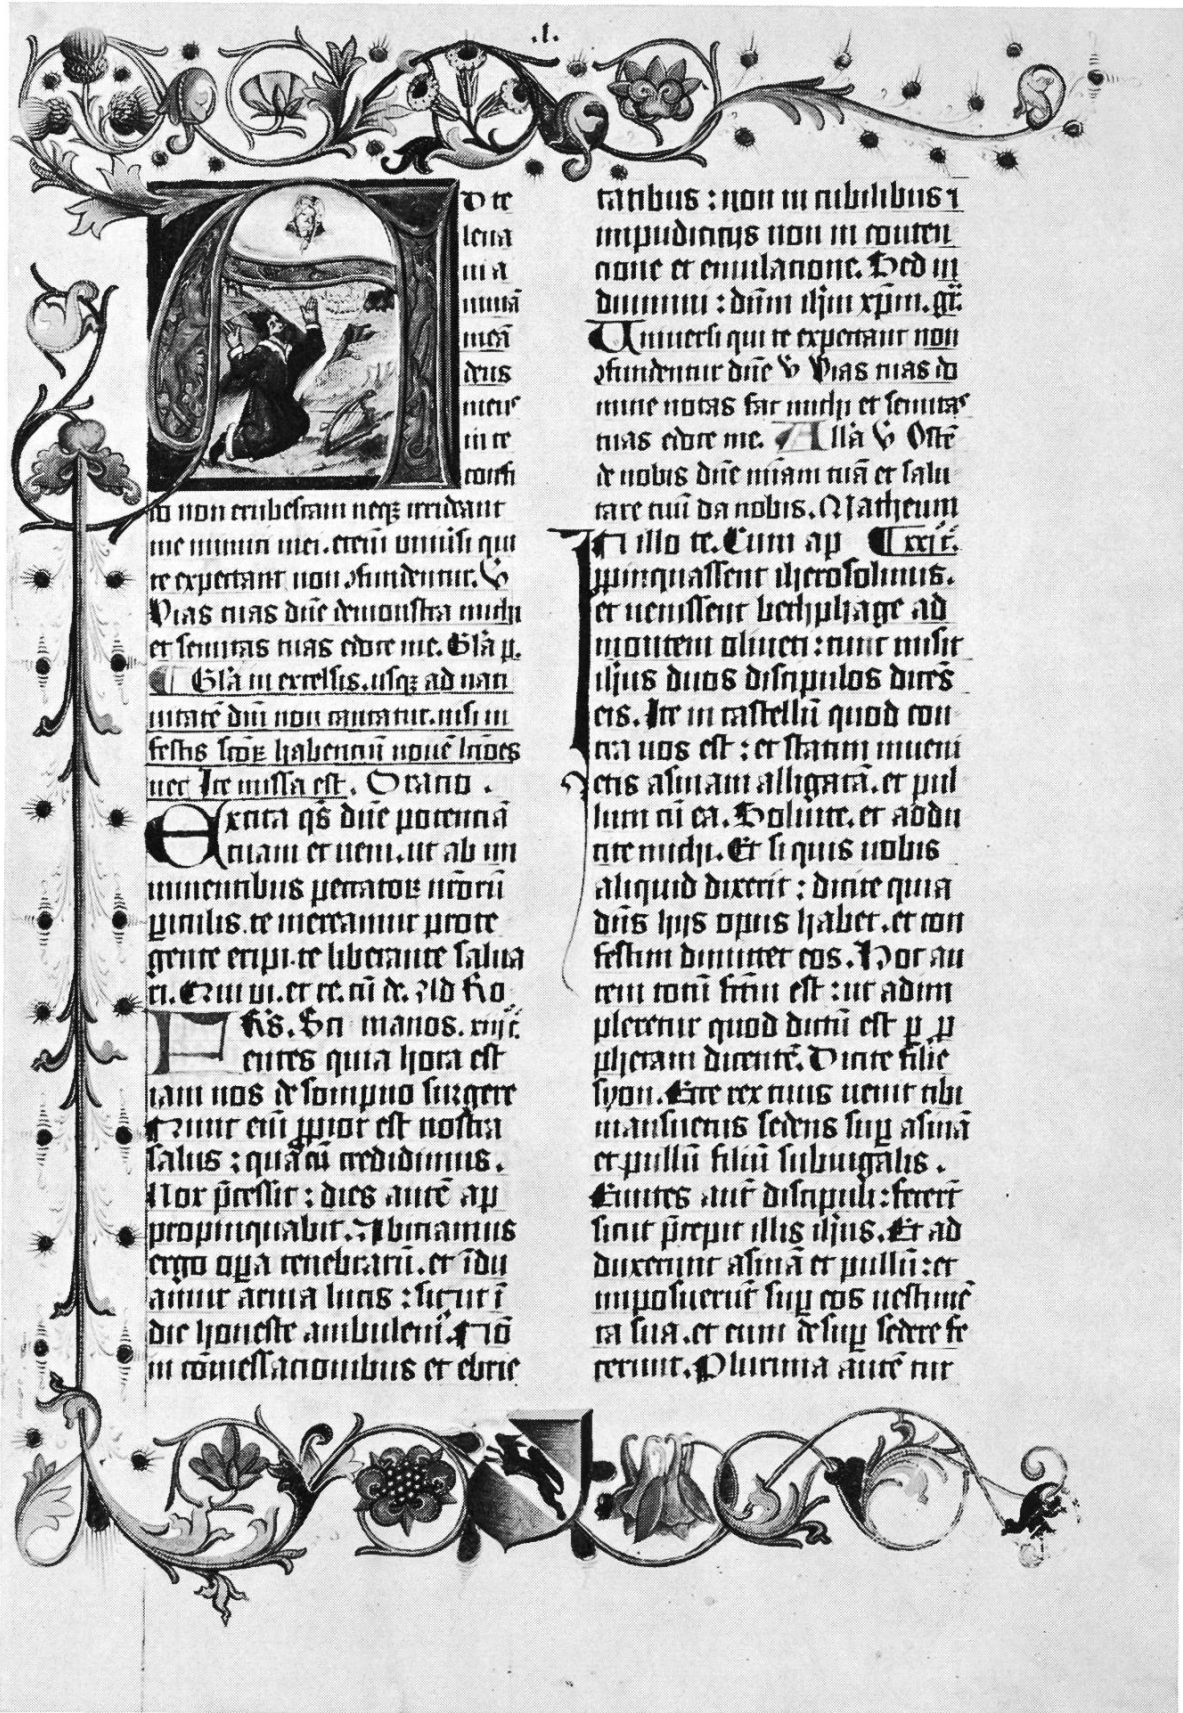 .I.
Ad te
leua
ui a
nimā
meā
deus
meus
in te
confi
do non erubescam neqꝫ irrideant
me inimici mei. etenī uniūsi qui
te expectant non ɔfundentur. V̄
Vias tuas dn̄e demonstra michi
et semitas tuas edoce me. Gl̄a p̄.
¶ Gl̄a in excelsis. usqꝫ ad nati
uitatē dn̄i non cantatur. nisi in
festis sc̄oꝝ habenciū nouē lc̄ōes
nec Ite missa est. Oracio.
Excita qs̄ dn̄e potenciā
tuam et ueni. ut ab im
minentibus peccatoꝝ nr̄orū
ꝑiculis. te mereamur prote
gente eripi. te liberante salua
ri. Qui ui. et re. cū de. Ad Ro
Fr̄s. Sci manos. xiii c̄.
entes quia hora est
iam nos de sompno surgere
Nunc eni ꝓpior est nostra
salus : quā cū credidimus.
Nox p̄cessit : dies autē ap
propinquabit. Abiciamus
ergo oꝑa tenebrarū. et īdu
amur arma lucis : sicut ī
die honeste ambulem̄. Nō
in cōmessacionibus et ebrie
tatibus : non in cubilibus ⁊
impudicitijs non in conten
cione et emulacione. Sed in
duimini : dn̄m ih̄m xp̄m. gr̄.
Uniuersi qui te expectant non
ɔfundentur dn̄e V̄ Vias tuas do
mine notas fac michi et semitas
tuas edoce me. Alla V̄ Ostē
de nobis dn̄e mīam tuā et salu
tare tuū da nobis. Matheum
In illo te. Cum ap ¶ xxi c̄.
ꝓpinquassent iherosolimis.
et uenissent bethphage ad
montem oliueti : tunc misit
ih̄us duos discipulos dicēs
eis. Ite in castellū quod con
tra uos est : et statim inueni
etis asinam alligatā. et pul
lum cū ea. Soluite. et addu
cite michi. Et si quis uobis
aliquid dixerit : dicite quia
dn̄s hijs opus habet. et con
festim dimittet eos. Hoc au
tem totū fc̄m est : ut adim
pleretur quod dictū est ꝑ ꝓ
phetam dicentē. Dicite filie
syon. Ecce rex tuus uenit tibi
mansuetus sedens suꝑ asinā
et pullū filiū subiugalis.
Euntes aut̄ discipuli : fecert̄
sicut p̄cepit illis ih̄us. Et ad
duxerunt asinā et pullū : et
imposuerūt suꝑ eos uestimē
ta sua. et eum desuꝑ sedere fe
cerunt. Plurima autē tur